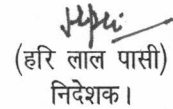 (हरि लाल पासी)
निदेशक।